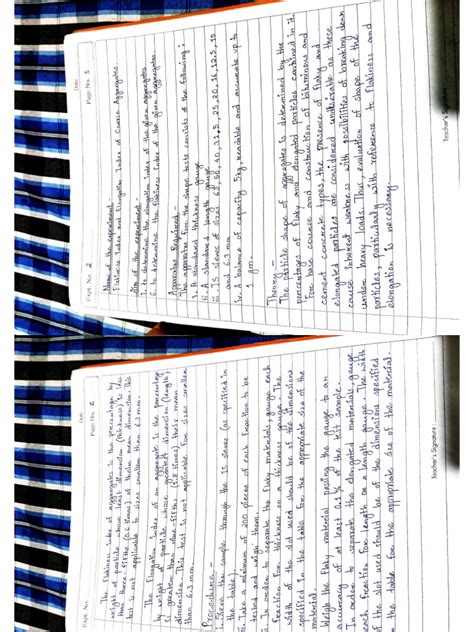 Date
Expt. No. 2
Page No. 5
Name of the experiment -
Flakiness Index and Elongation Index of Coarse Aggregates
Aim of the experiment -
i. to determine the elongation index of the given aggregates
ii. to determine the flakiness index of the given aggregates.
Apparatus Required -
The apparatus for the shape tests consists of the following :
i. A standard thickness gauge
ii. A standard length gauge
iii. IS sieves of sizes 63, 50, 40, 31.5, 25, 20, 16, 12.5, 10
and 6.3 mm
iv. A balance of capacity 5kg, readable and accurate up to
1 gm.
Theory -
The particle shape of aggregates is determined by the
percentages of flaky and elongated particles contained in it.
For base course and construction of bituminous and
cement concrete types, the presence of flaky and
elongated particles are considered undesirable as these
cause inherent weakness with possibilities of breaking down
under heavy loads. Thus evaluation of shape of the
particles, particularly with reference to flakiness and
elongation is necessary.
Teacher's Signature
Date
Expt. No.
Page No. 6
The flakiness index of aggregates is the percentage by
weight of particles whose least dimension (thickness) is less
than three-fifths (0.6 times) of their mean dimension. This
test is not applicable to sizes smaller than 6.3 mm.
The Elongation index of an aggregate is the percentage
by weight of particles whose greatest dimension (length)
is greater than nine-fifths (1.8 times) their mean
dimension. This test is not applicable for sizes smaller
than 6.3 mm.
Procedure -
i. Sieve the sample through the IS sieve (as specified in
the table).
ii. Take a minimum of 200 pieces of each fraction to be
tested and weigh them.
In order to separate the flaky materials, gauge each
fraction for thickness on a thickness gauge. The
width of the slot used should be of the dimensions
specified in the table for the appropriate size of the
material.
Weigh the flaky material passing the gauge to an
accuracy of at least 0.1% of the test sample.
In order to separate the elongated materials, gauge
each fraction for length on a length gauge. The width
of the slot used should be of the dimensions specified
in the table for the appropriate size of the material.
Teacher's Signature